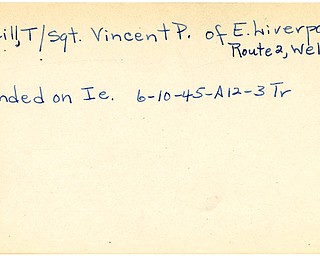 ill, T/Sgt. Vincent P. of E. Liverpo
Route 2, Wel
nded on Ie. 6-10-45-A12-3 Tr